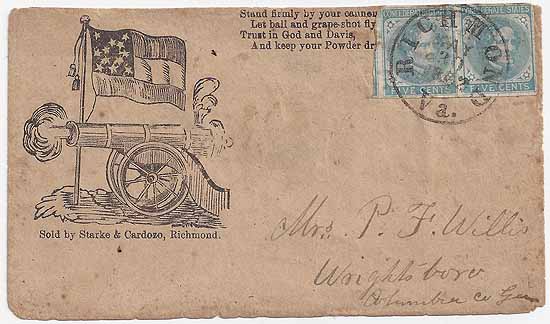 Stand firmly by your cannon
Let ball and grape-shot fly
Trust in God and Davis,
And keep your Powder dr
CONFEDERATE STATES
FIVE CENTS
FEDERATE STATES
FIVE CENTS
RICHMOND
Va.
Sold by Starke & Cardozo, Richmond.
Mrs. P. F. Willis
Wrightsboro
Columbia co